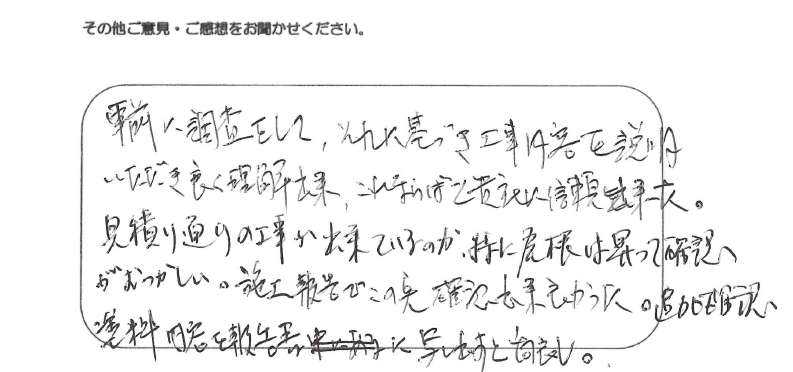 その他ご意見・ご感想をお聞かせください。
事前に調査をして、それに基づき工事内容を説明
いただき良く理解出来、これならばと貴社に信頼出来た。
見積り通りの工事が出来ているのか、特に屋根は昇って確認
がむつかしい。施工報告でこの点確認出来良かった。追加で確認
塗料内容を報告書に写しますと尚良し。